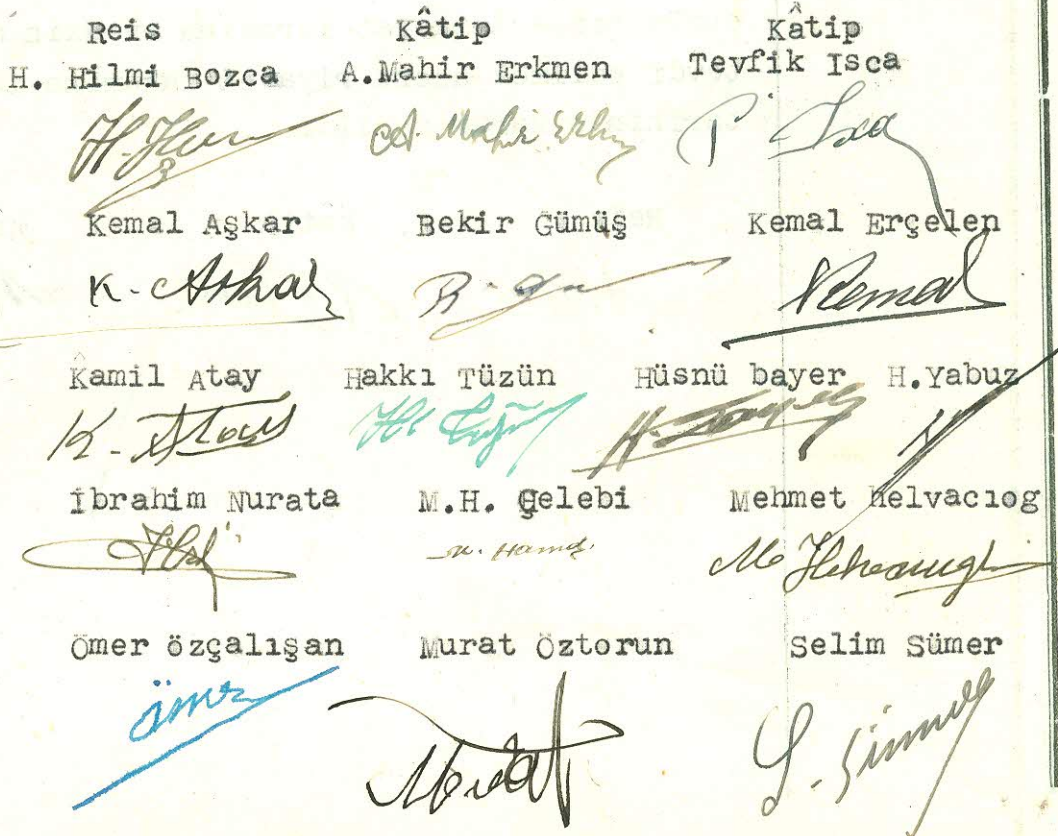 Reis Kâtip Kâtip
H. Hilmi Bozca A.Mahir Erkmen Tevfik Isca
A. Mahir Erkm T Isca
Kemal Aşkar Bekir Gümüş Kemal Erçelen
K. Aşkar Kemal
Kamil Atay Hakkı Tüzün Hüsnü bayer H.Yabuz
K. Atay
İbrahim Nurata M.H. Çelebi Mehmet helvacıog
M. Hamdi
Ömer özçalışan Murat Öztorun Selim Sümer
Ömer Murat S. Sümer